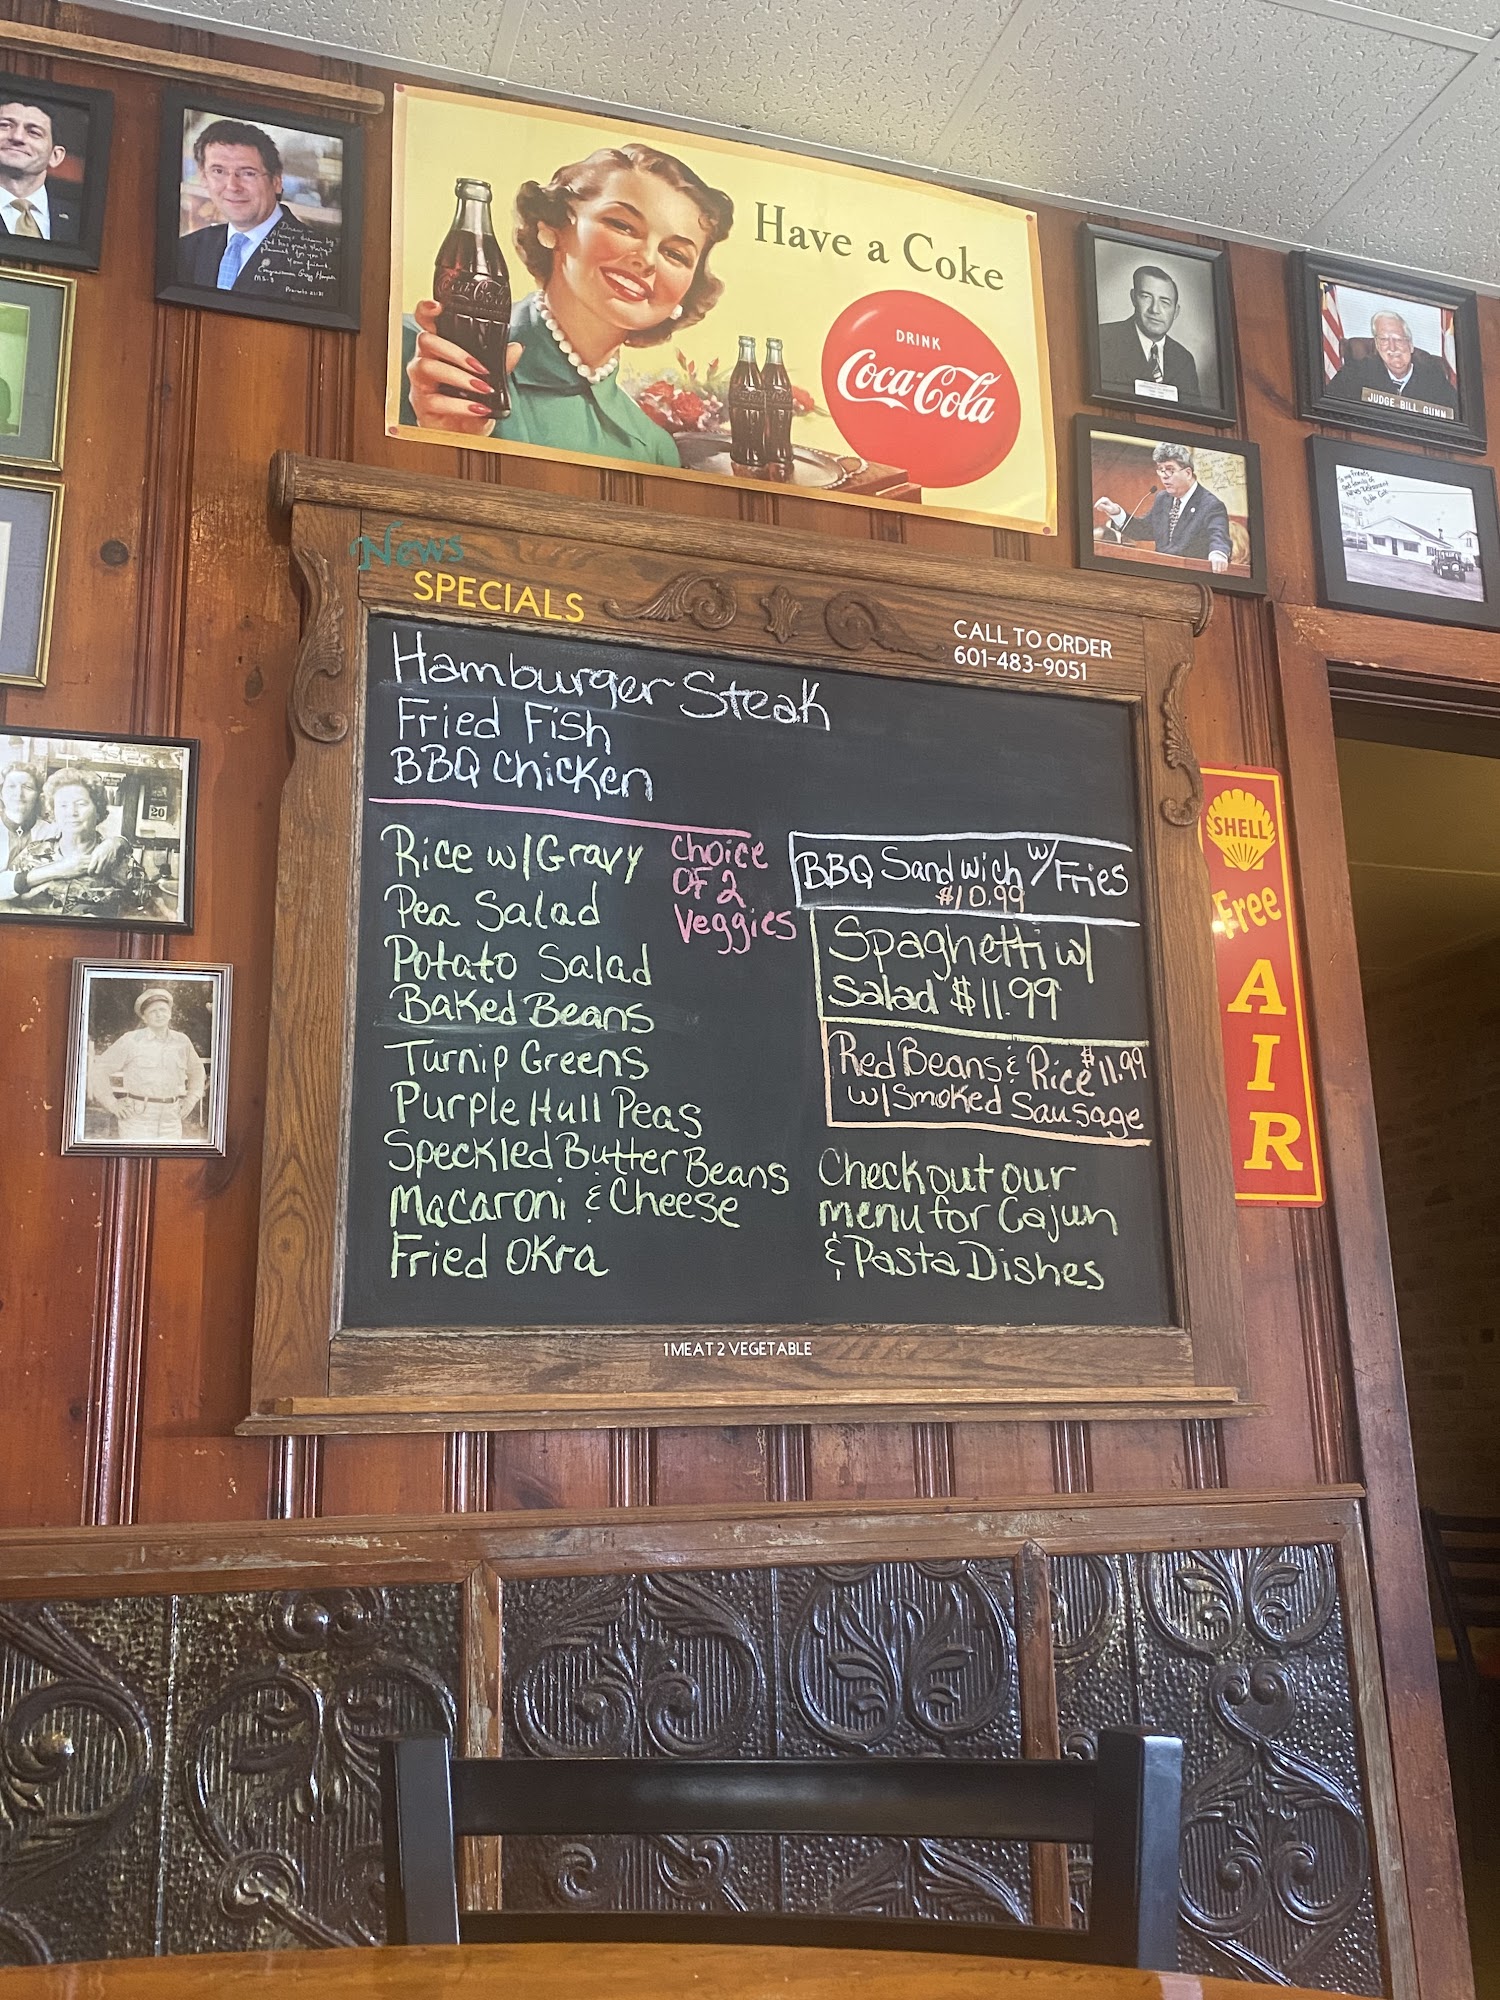 Have a Coke
DRINK
Coca-Cola
Coca-Cola
JUDGE BILL GUNN
News
SPECIALS
CALL TO ORDER
601-483-9051
Hamburger Steak
Fried Fish
BBQ Chicken
Rice w/Gravy
Pea Salad
Potato Salad
Baked Beans
Turnip Greens
Purple Hull Peas
Speckled Butter Beans
Macaroni & Cheese
Fried Okra
Choice
of 2
Veggies
BBQ Sandwich w/ Fries
$10.99
Spaghetti w/
Salad $11.99
Red Beans & Rice $11.99
w/Smoked Sausage
Check out our
menu for Cajun
& Pasta Dishes
1 MEAT 2 VEGETABLE
SHELL
Free
AIR
20